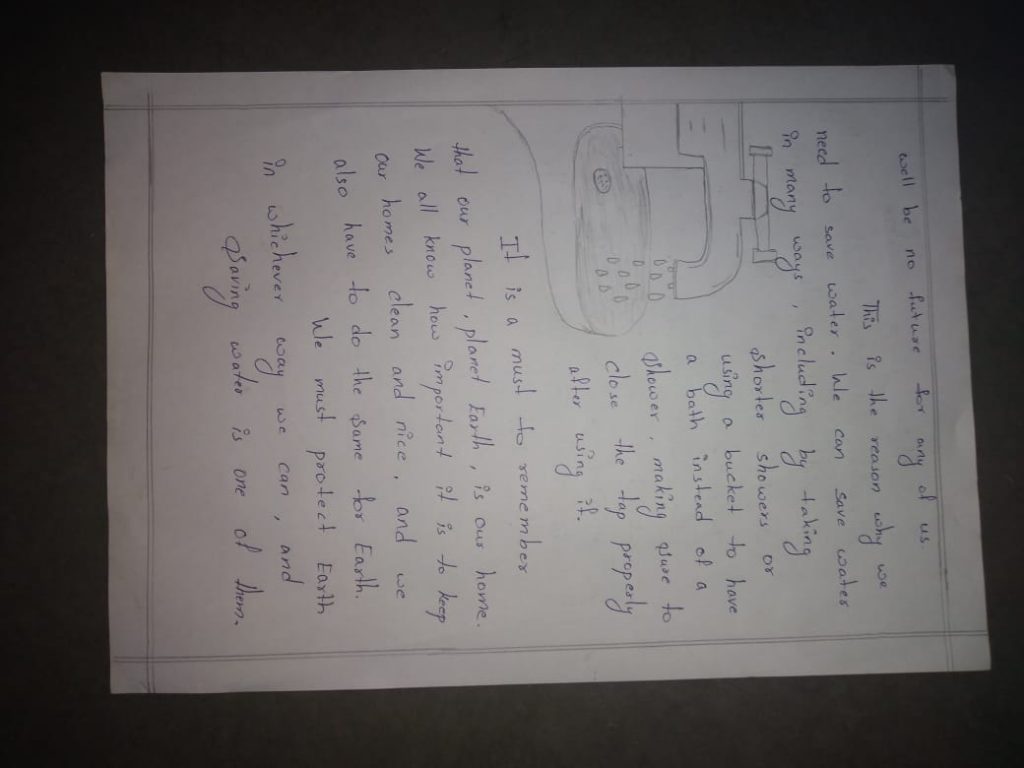 well be no future for any of us.
This is the reason why we
need to save water. We can save water
in many ways, including by taking
shorter showers or
using a bucket to have
a bath instead of a
shower, making sure to
close the tap properly
after using it.
It is a must to remember
that our planet, planet Earth, is our home.
We all know how important it is to keep
our homes clean and nice, and we
also have to do the same for Earth.
We must protect Earth
in whichever way we can, and
saving water is one of them.